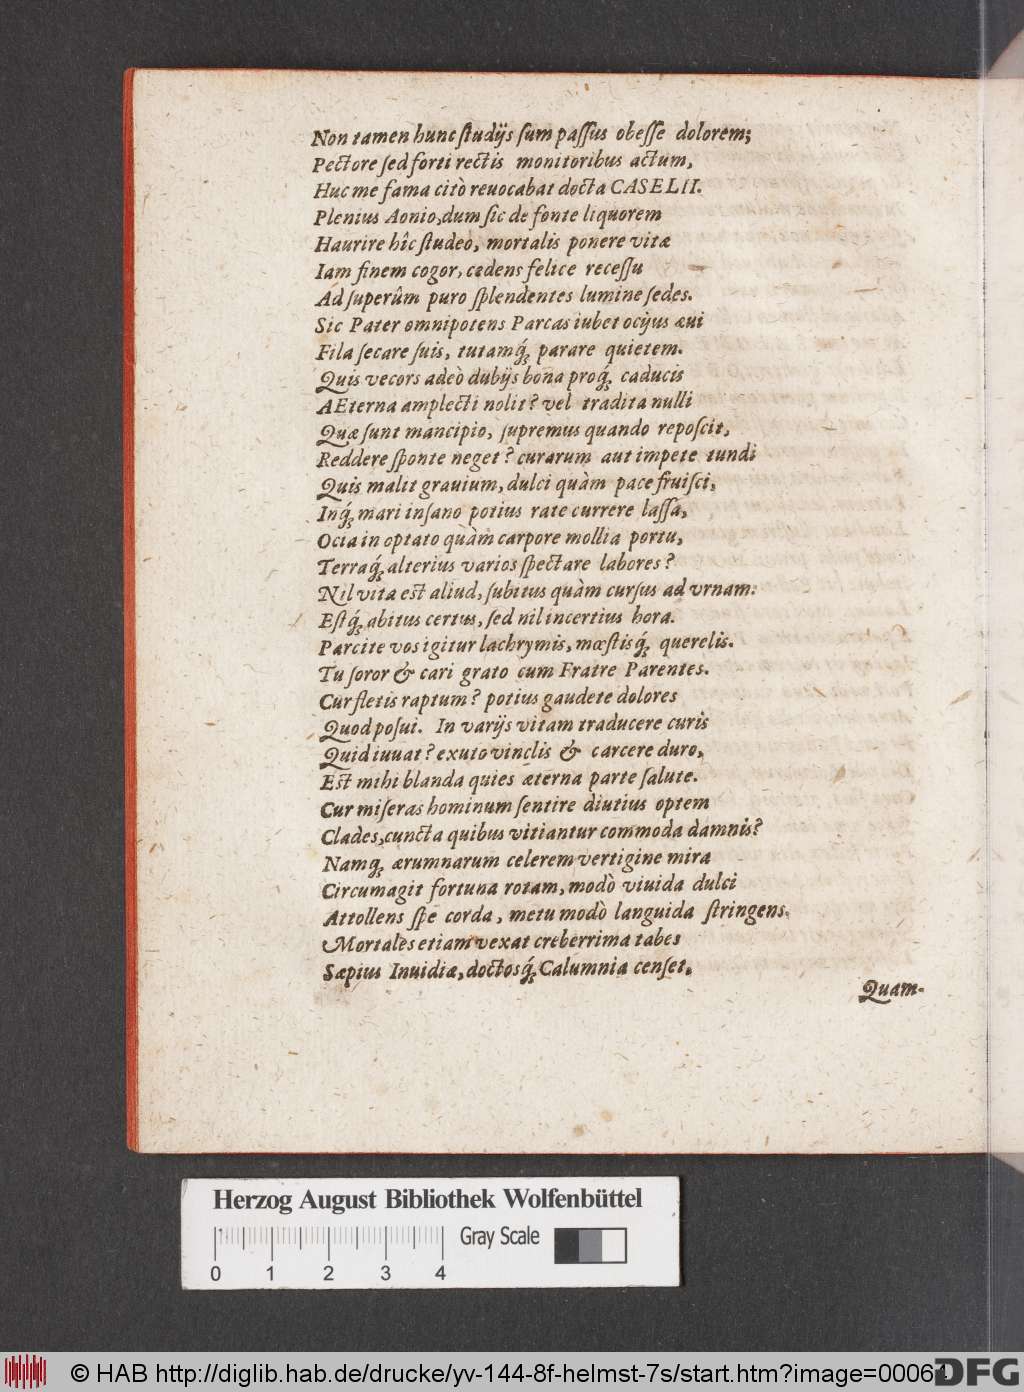 Non tamen hunc ſtudijs ſum paſſus obeſſe dolorem;
Pectore ſed forti rectis monitoribus actum,
Huc me fama citò reuocabat docta CASELII.
Plenius Aonio, dum ſic de fonte liquorem
Haurire hîc ſtudeo, mortalis ponere vitæ
Iam finem cogor, cedens felice receſſu
Ad ſuperûm puro ſplendentes lumine ſedes.
Sic Pater omnipotens Parcas iubet ocijus æui
Fila ſecare ſuis, tutamq́; parare quietem.
Quis vecors adeò dubijs bona proq́; caducis
AEterna amplecti nolit? vel tradita nulli
Quæ ſunt mancipio, ſupremus quando repoſcit,
Reddere ſponte neget? curarum aut impete tundi
Quis malit grauium, dulci quàm pace fruiſci,
Inq́; mari inſano potius rate currere laſſa,
Ocia in optato quàm carpore mollia portu,
Terraq́; alterius varios ſpectare labores?
Nil vita eſt aliud, ſubitus quàm curſus ad vrnam:
Eſtq́; abitus certus, ſed nil incertius hora.
Parcite vos igitur lachrymis, mœſtisq́; querelis.
Tu ſoror & cari grato cum Fratre Parentes.
Cur fletis raptum? potius gaudete dolores
Quod poſui. In varijs vitam traducere curis
Quid iuuat? exuto vinclis & carcere duro,
Eſt mihi blanda quies æterna parte ſalute.
Cur miſeras hominum ſentire diutius optem
Clades, cuncta quibus vitiantur commoda damnis?
Namq; ærumnarum celerem vertigine mira
Circumagit fortuna rotam, modò viuida dulci
Attollens ſpe corda, metu modò languida ſtringens.
Mortales etiam vexat creberrima tabes
Sæpius Inuidiæ, doctosq́; Calumnia cenſet,
Quam-
Herzog August Bibliothek Wolfenbüttel
Gray Scale
0 1 2 3 4
© HAB http://diglib.hab.de/drucke/yv-144-8f-helmst-7s/start.htm?image=00064
DFG